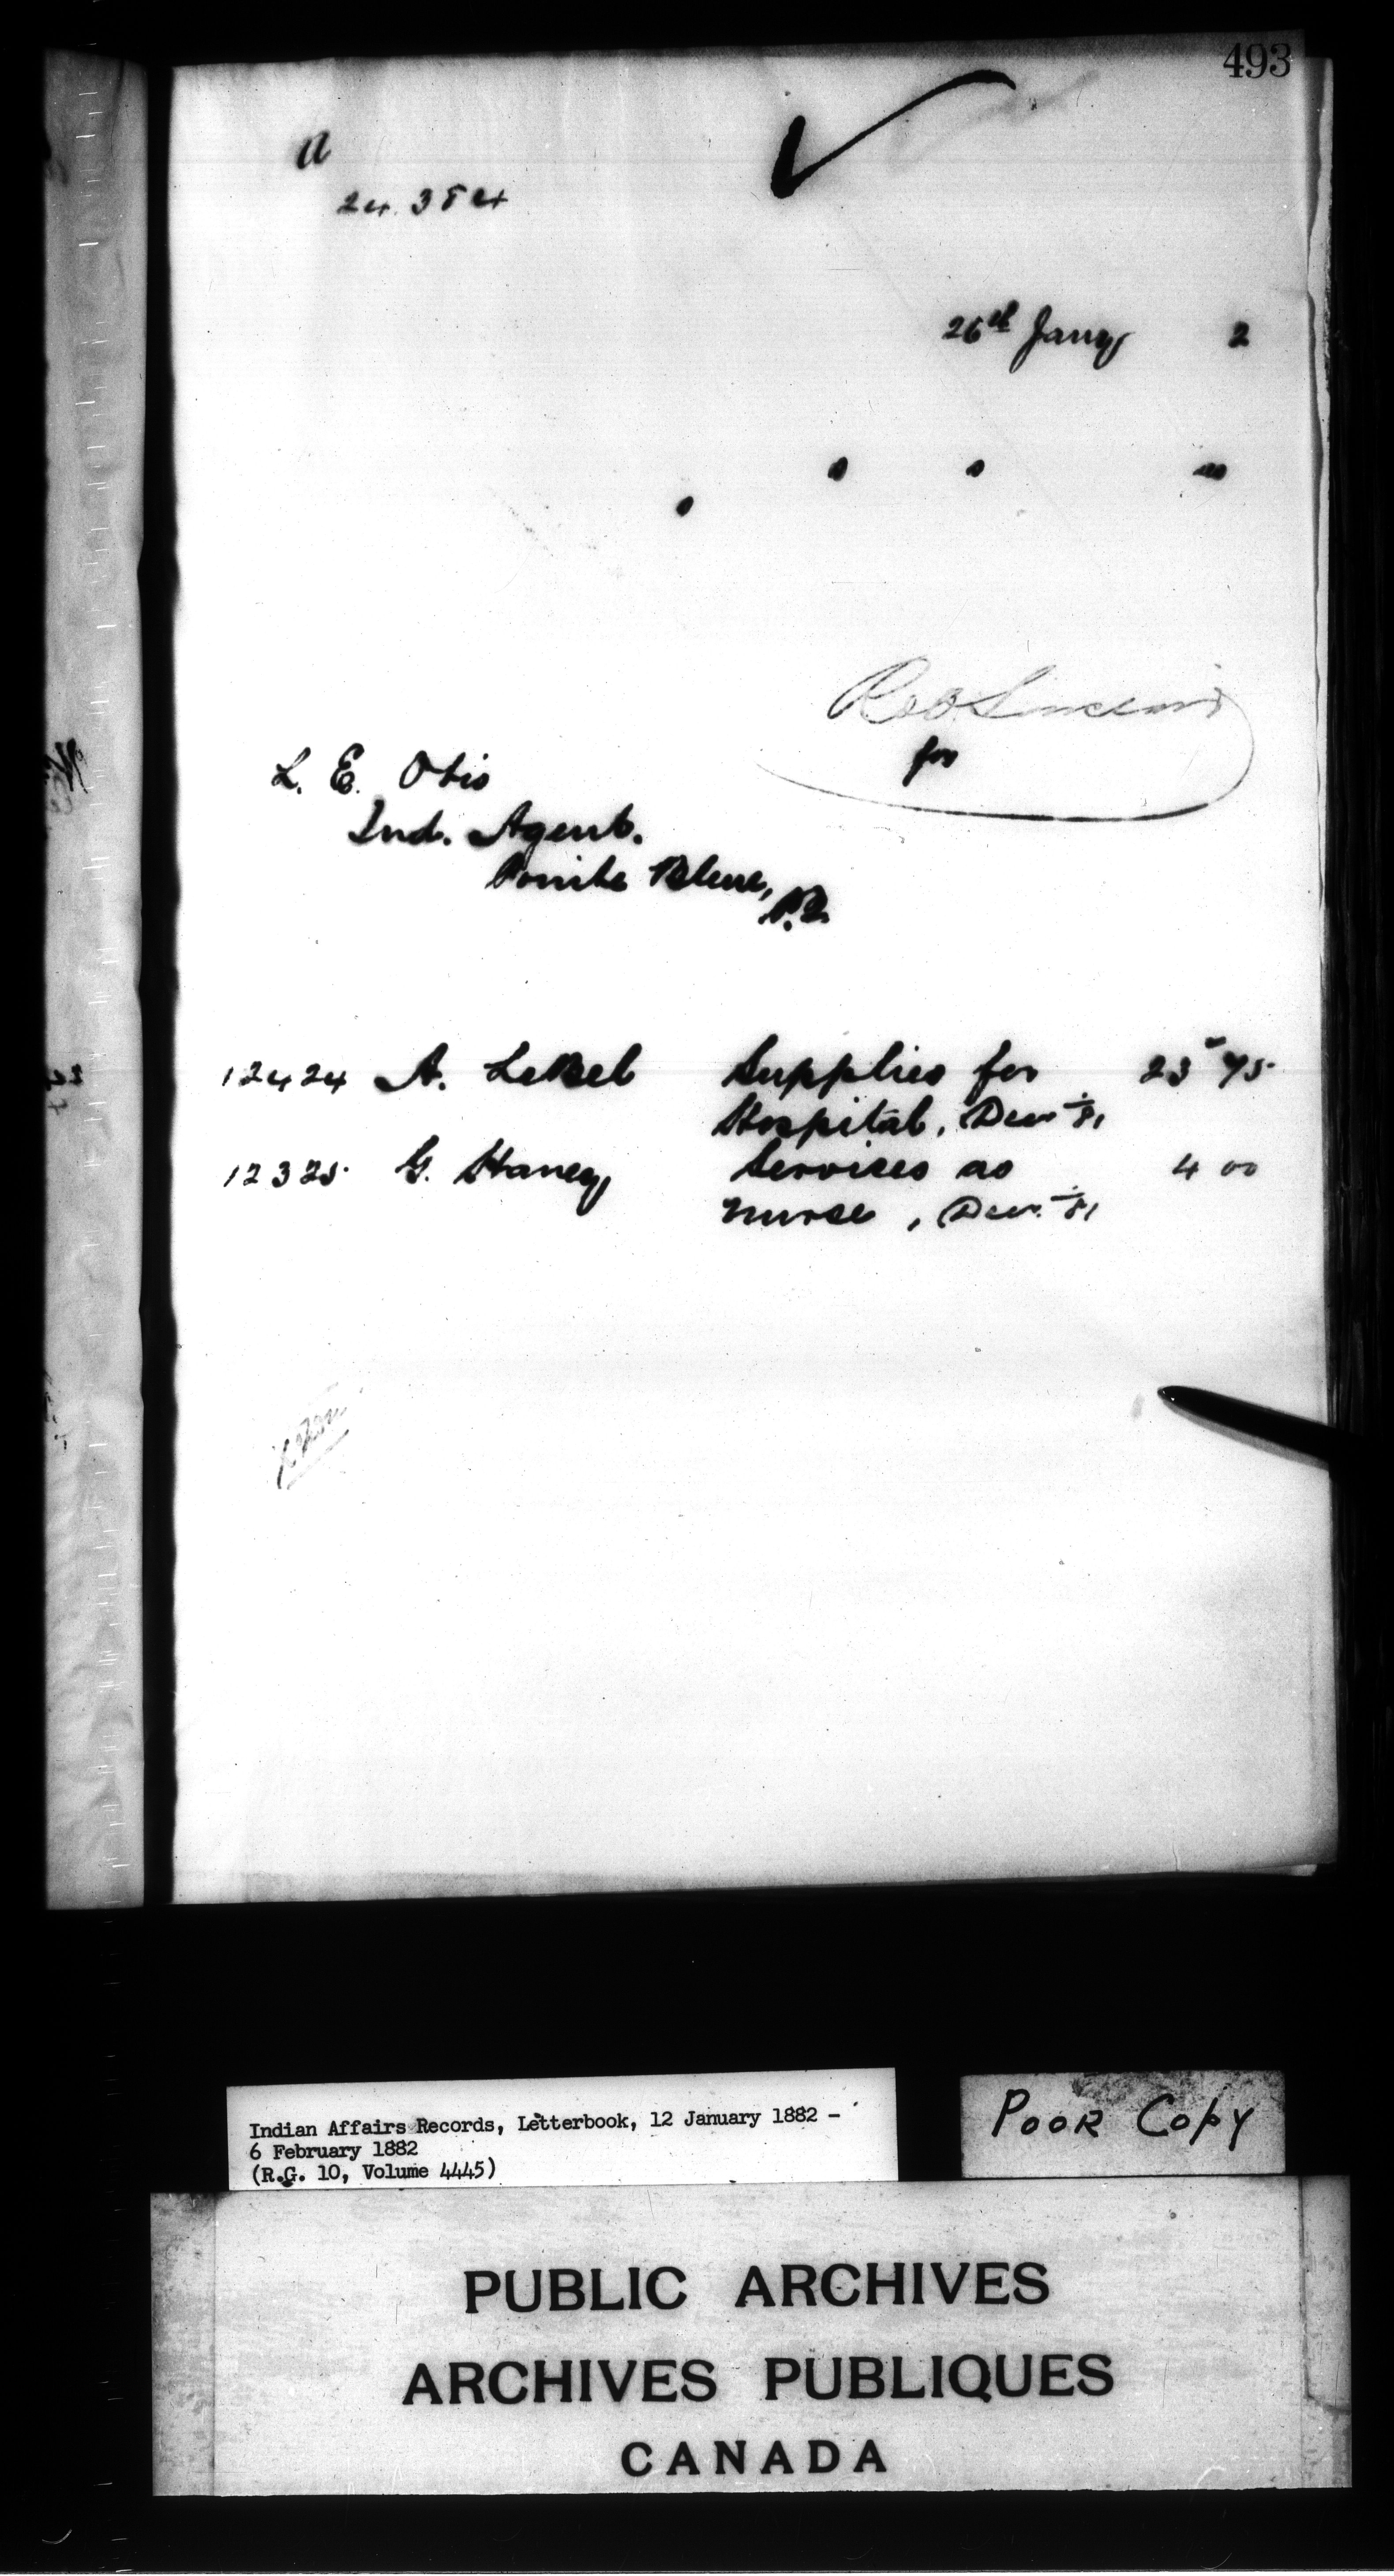 493
a
24.384
26th Jany 2
for
L. E. Otis
Ind. Agent.
Pointe Bleue,
P.Q.
12424 A. LeBel Supplies for 23 75
Hospital, Decr /81
12325 G. Haney Services as 4 00
nurse, Decr /81
Indian Affairs Records, Letterbook, 12 January 1882 -
6 February 1882
(R.G. 10, Volume 4445)
POOR COPY
PUBLIC ARCHIVES
ARCHIVES PUBLIQUES
CANADA